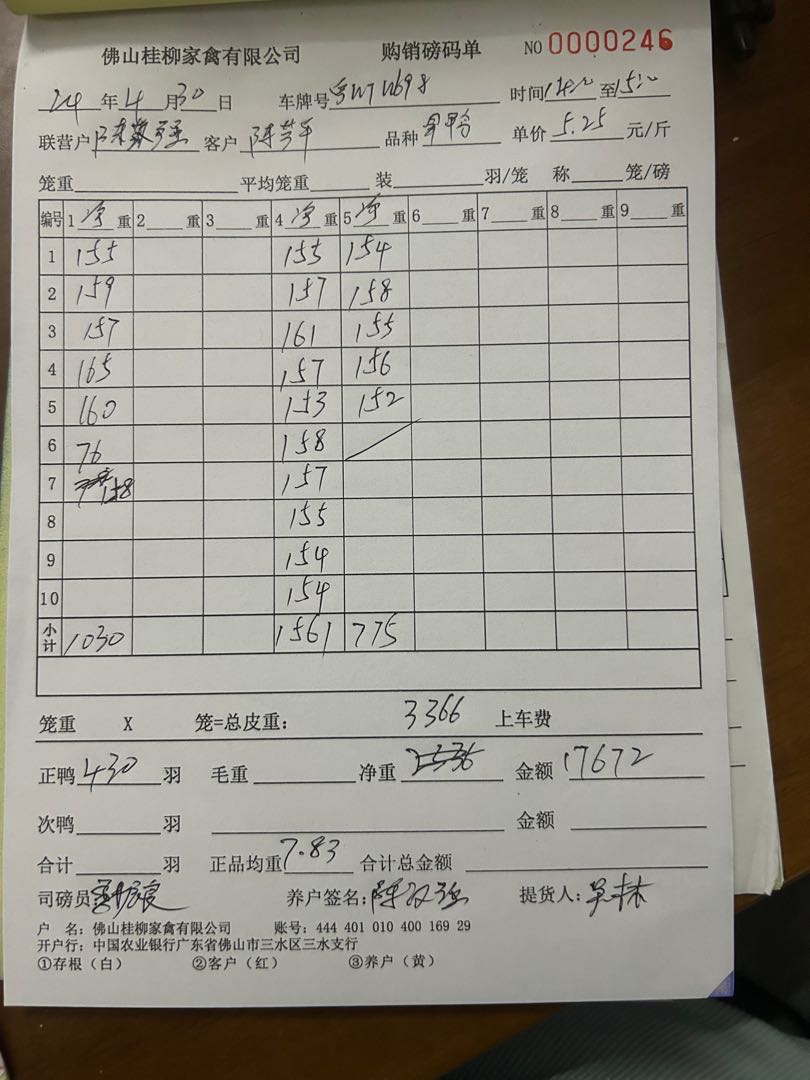 佛山桂柳家禽有限公司 购销磅码单 NO 0000246
24 年 4 月 30 日 车牌号 时间 至 15:00
联营户 客户 品种 单价 5.25 元/斤
笼重 平均笼重 装 羽/笼 称 笼/磅
编号 1 净 重 2 重 3 重 4 净 重 5 净 重 6 重 7 重 8 重 9 重
1 155 155 154
2 159 157 158
3 157 161 155
4 165 157 156
5 160 153 152
6 76 158
7 158 157
8 155
9 154
10 154
小计 1030 1561 775
笼重 X 笼=总皮重: 3366 上车费
正鸭 430 羽 毛重 净重 金额 17672
次鸭 羽 金额
合计 羽 正品均重 7.83 合计总金额
司磅员 养户签名: 提货人:
户 名: 佛山桂柳家禽有限公司 账号: 444 401 010 400 169 29
开户行: 中国农业银行广东省佛山市三水区三水支行
①存根(白) ②客户(红) ③养户(黄)